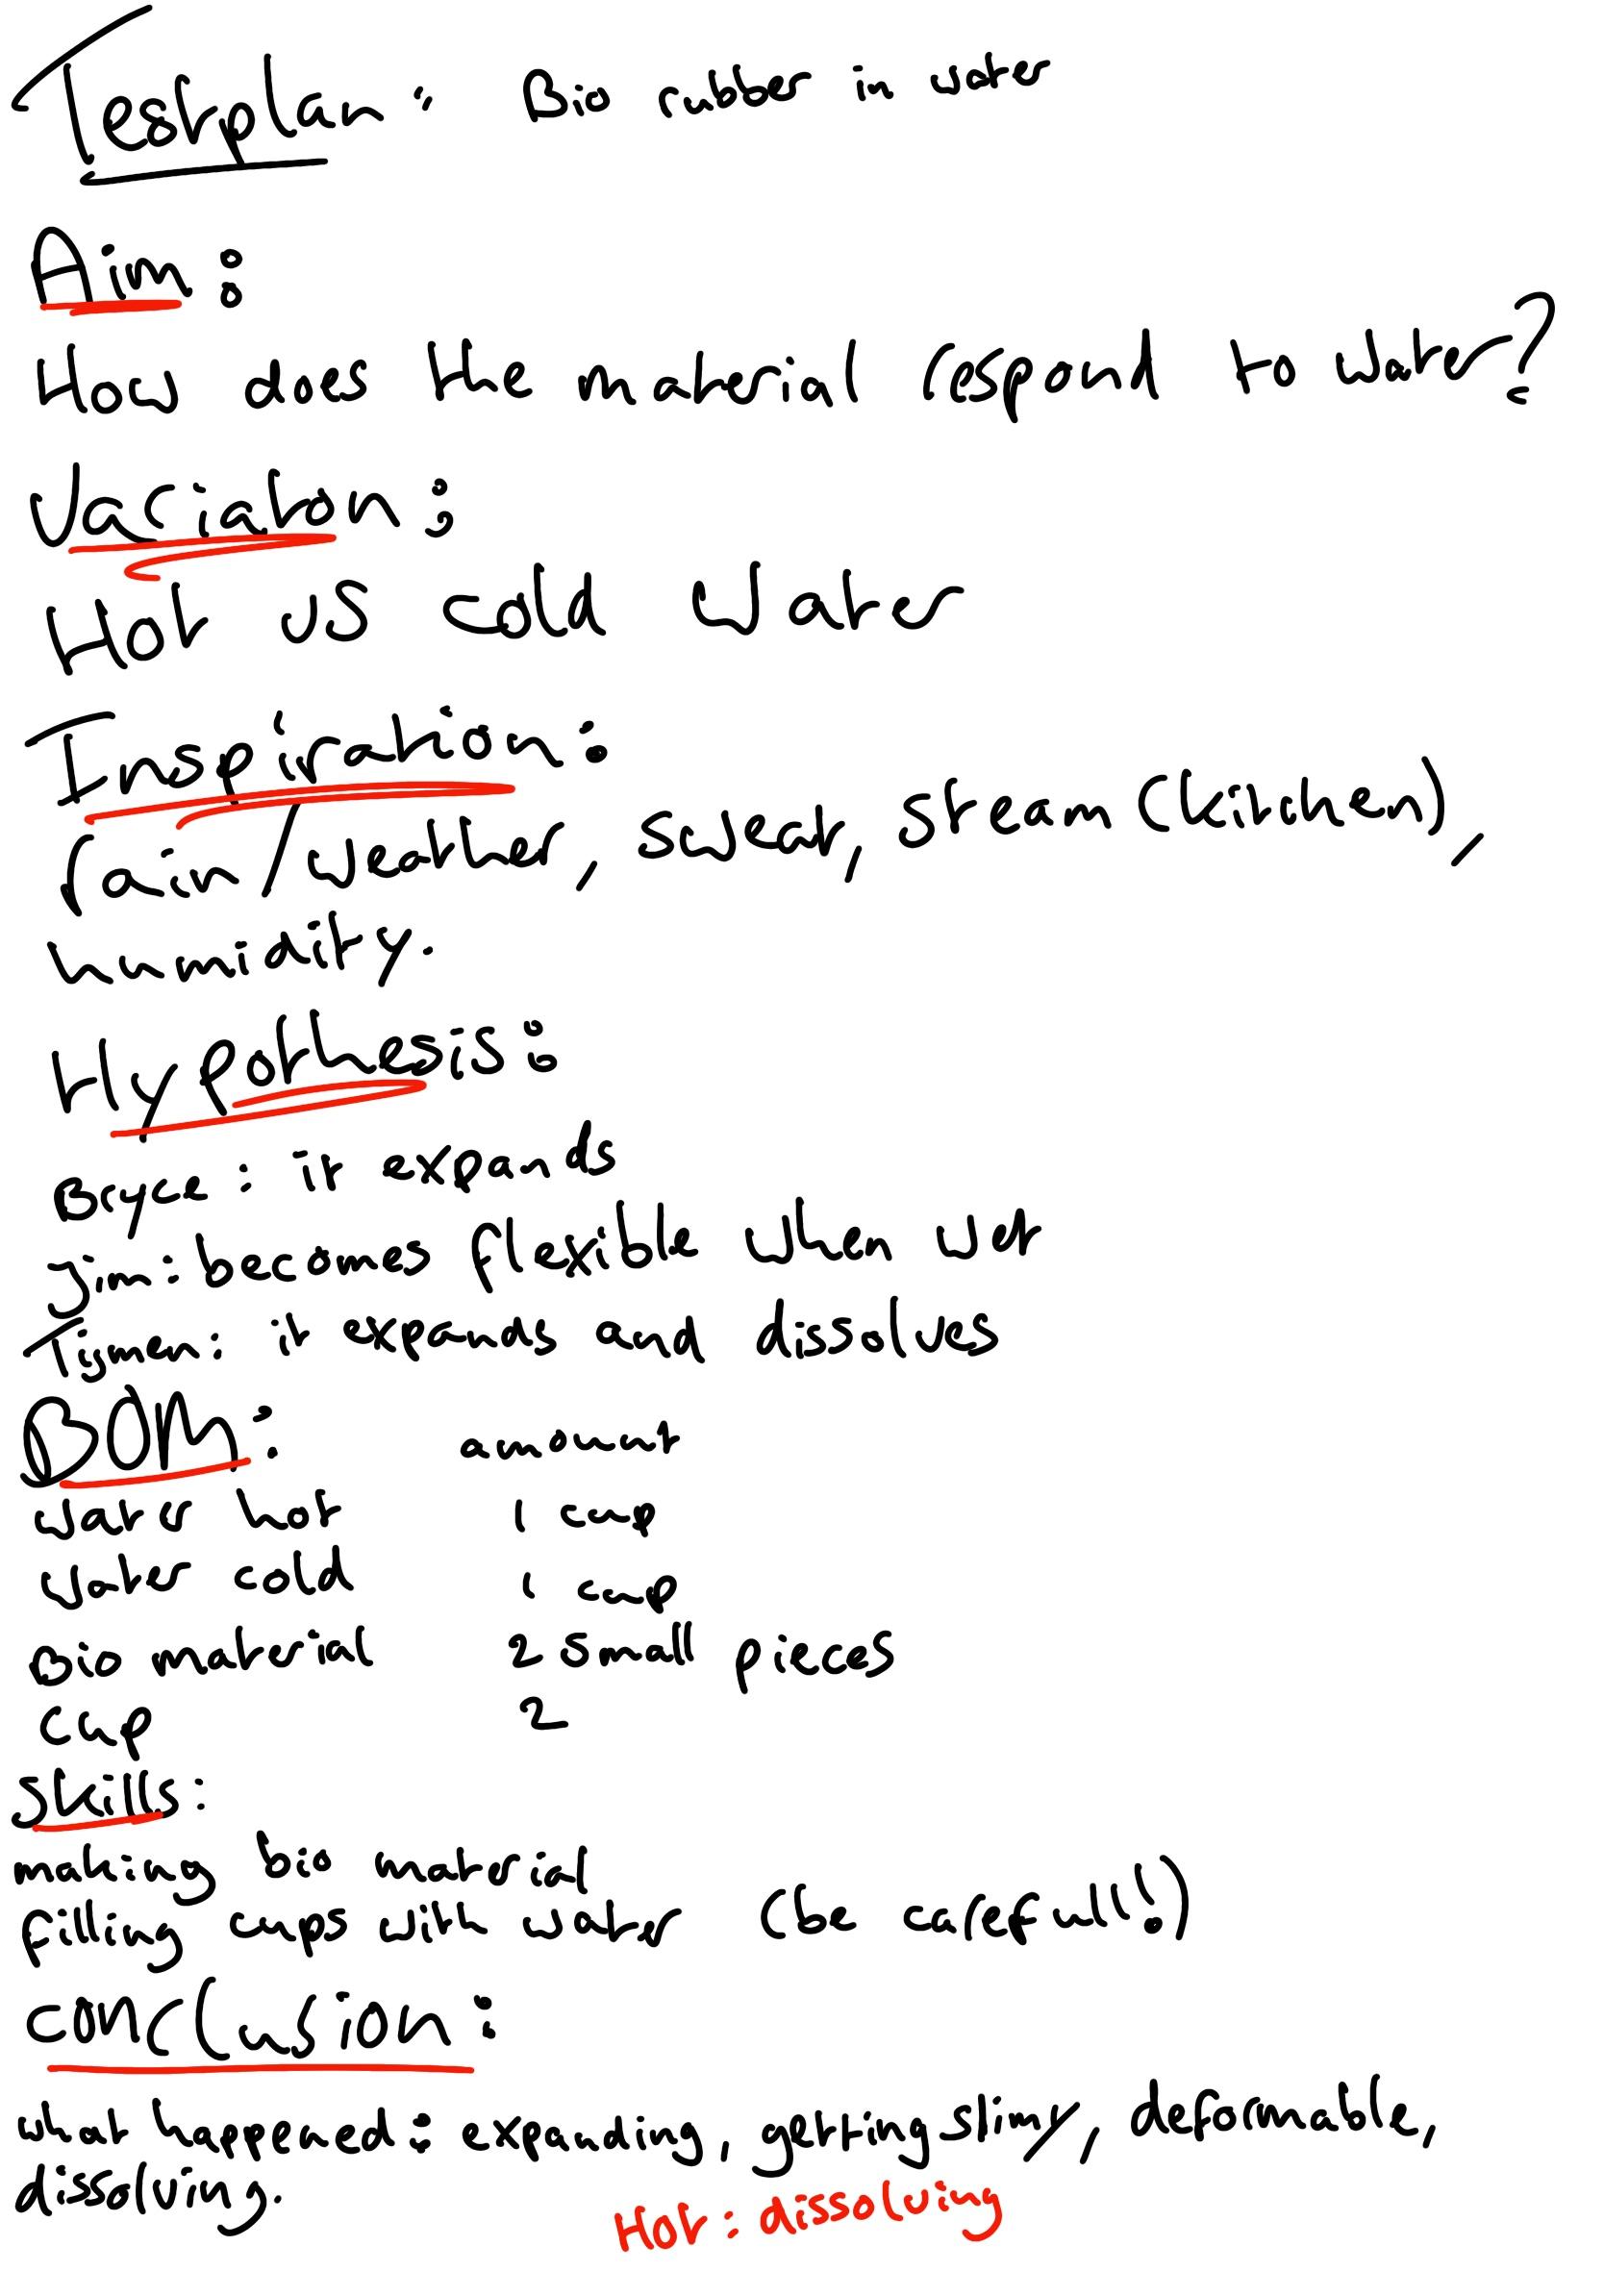 Testplan: Bio rubber in water
Aim:
How does the material respond to water?
Variation:
Hot vs cold water
Inspiration:
rain/weather, sweat, steam (kitchen),
humidity.
Hypothesis:
Bryce: it expands
Jim: becomes flexible when wet
Tijmen: it expands and dissolves
BOM: amount
water hot 1 cup
water cold 1 cup
Bio material 2 small pieces
cup 2
Skills:
making bio material
filling cups with water (be carefull!)
conclusion:
what happened: expanding, getting slimy, deformable,
dissolving.
Hot: dissolving